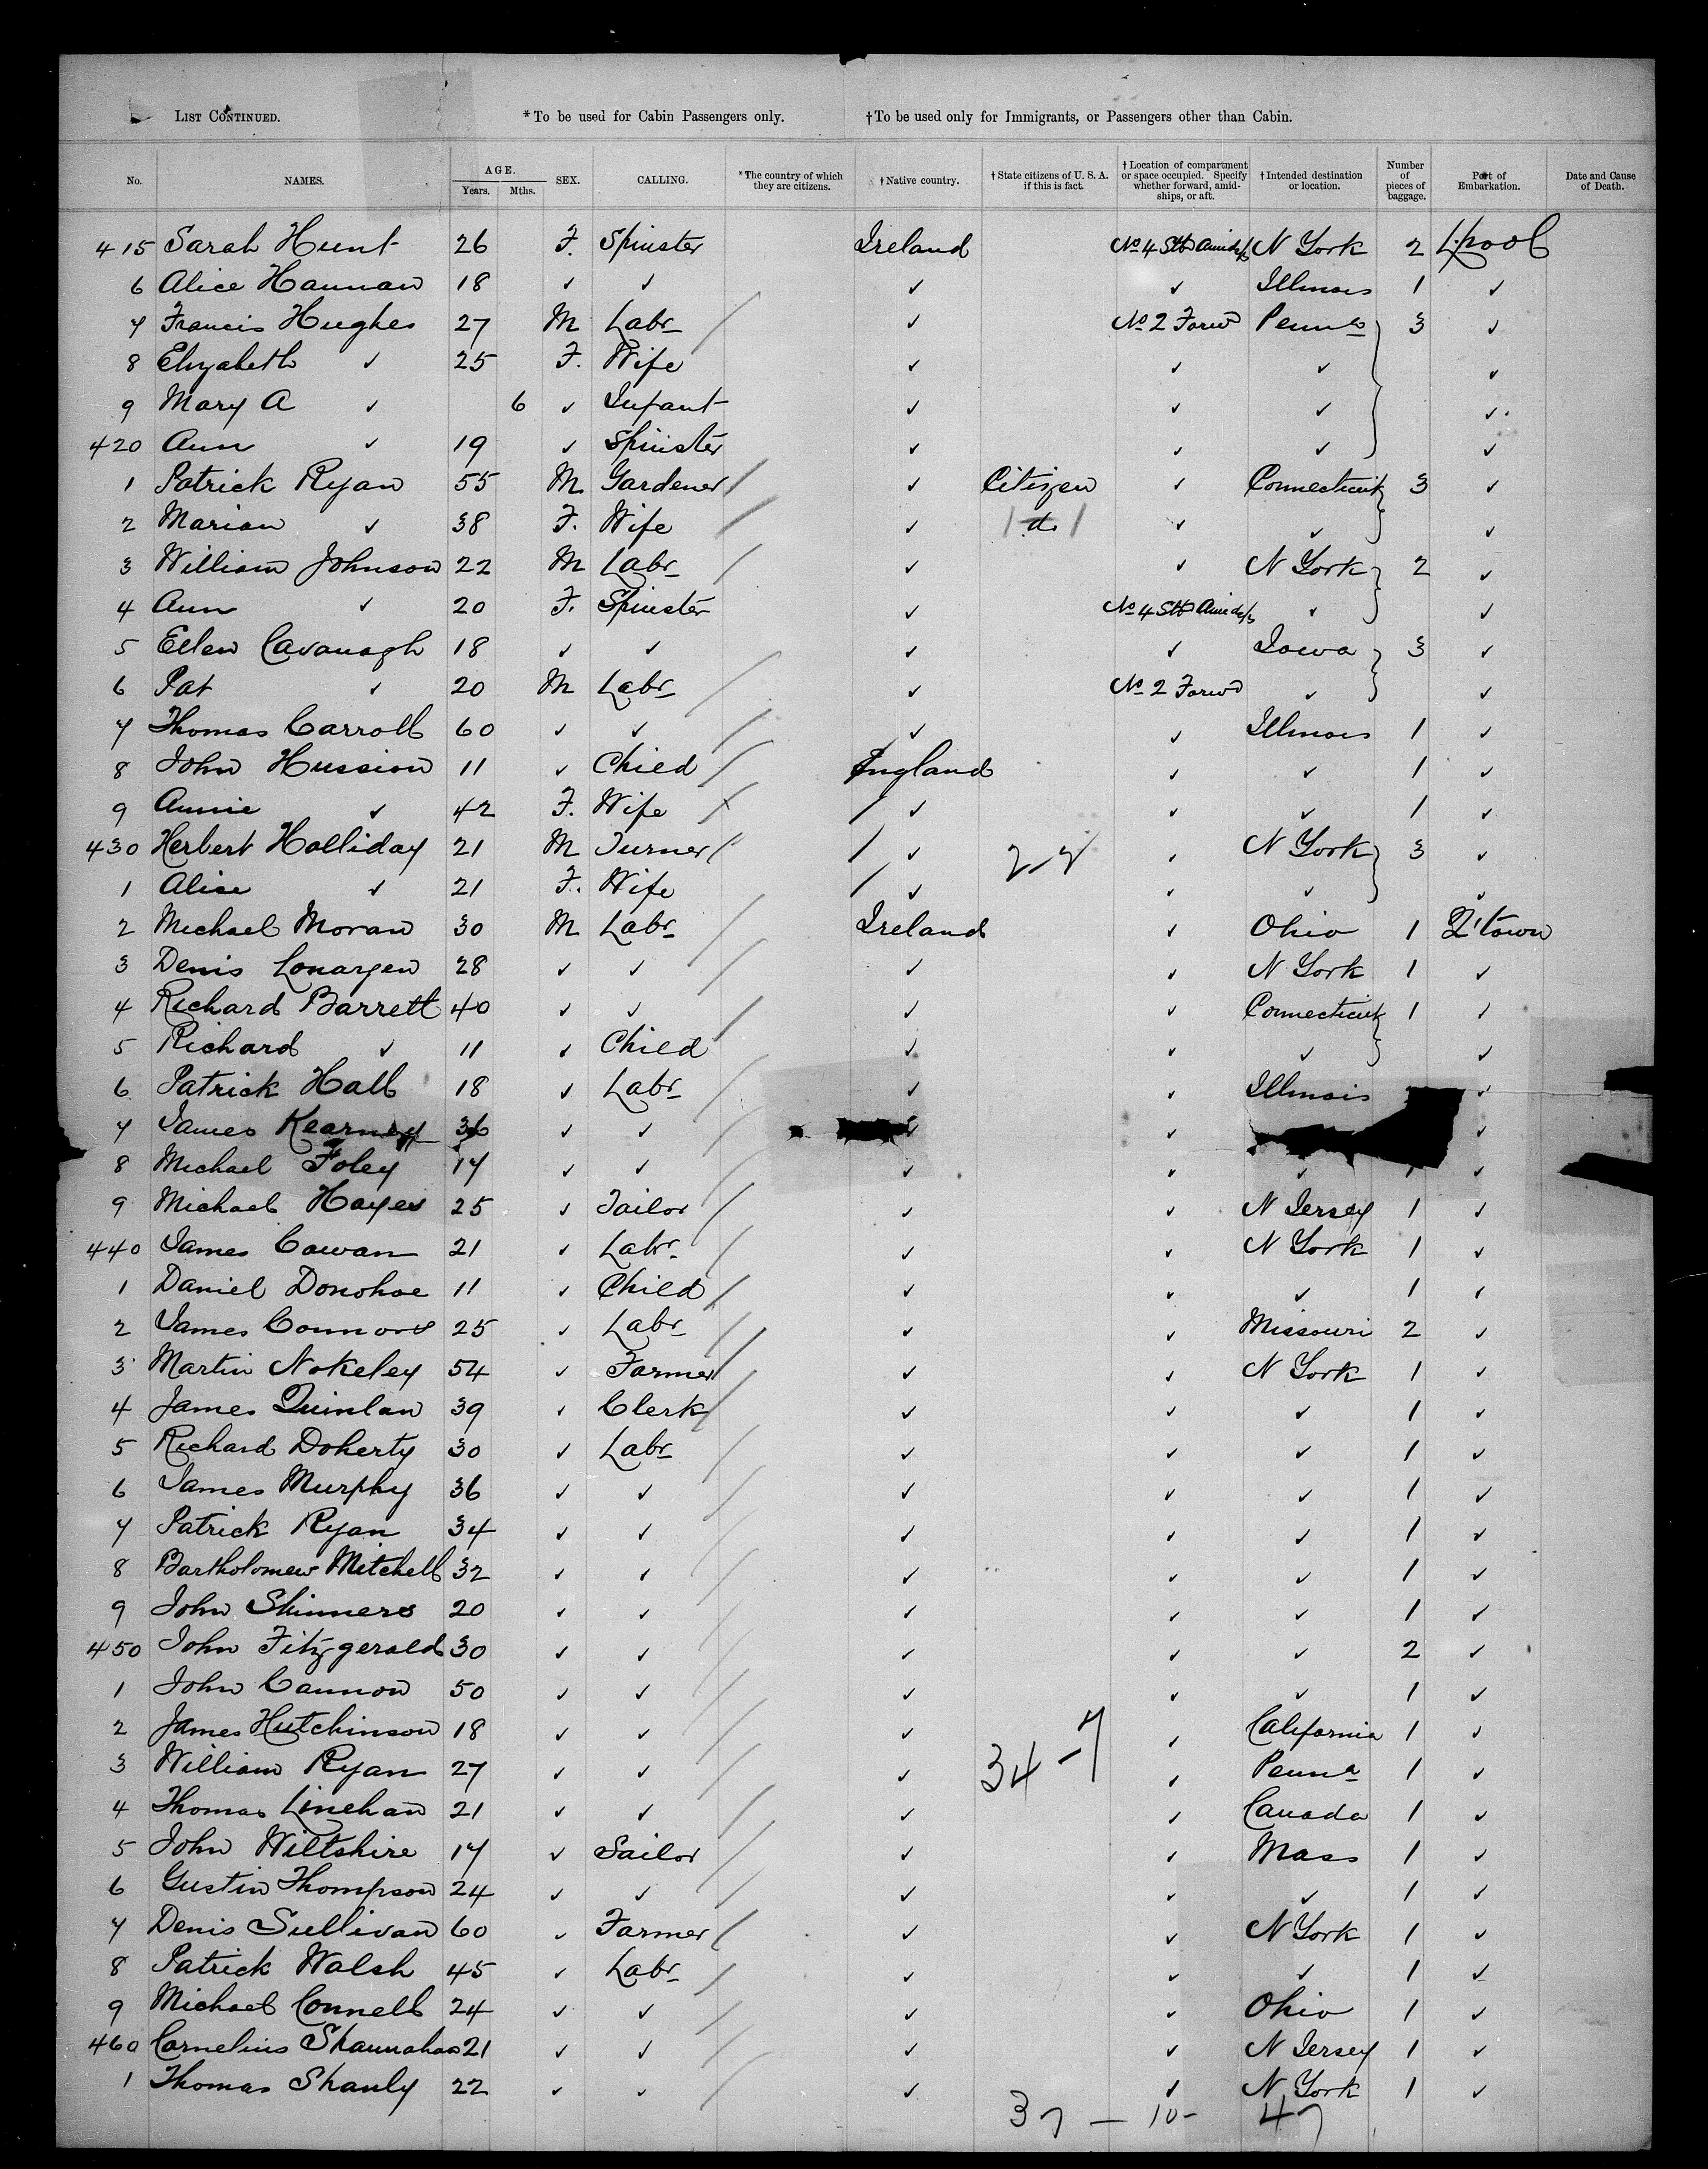 LIST CONTINUED. *To be used for Cabin Passengers only. †To be used only for Immigrants, or Passengers other than Cabin.
No. NAMES. AGE. Years. Mths. SEX. CALLING. *The country of which they are citizens. †Native country. †State citizens of U. S. A. if this is fact. †Location of compartment or space occupied. Specify whether forward, amidships, or aft. †Intended destination or location. Number of pieces of baggage. Port of Embarkation. Date and Cause of Death.
415 Sarah Hunt 26 F. Spinster Ireland No 4 Stb Amids/s N York 2 L.pool
6 Alice Hannan 18 ✓ ✓ ✓ ✓ Illinois 1 ✓
7 Francis Hughes 27 M Labr / ✓ No 2 Forwd Penna 3 ✓
8 Elizabeth ✓ 25 F. Wife ✓ ✓ ✓ ✓
9 Mary A ✓ 6 ✓ Infant ✓ ✓ ✓ ✓
420 Ann ✓ 19 ✓ Spinster ✓ ✓ ✓ ✓
1 Patrick Ryan 55 M Gardener / ✓ Citizen ✓ Connecticut 3 ✓
2 Marian ✓ 38 F. Wife / ✓ 1 do 1 ✓ ✓ ✓
3 William Johnson 22 M Labr / ✓ ✓ N York 2 ✓
4 Ann ✓ 20 F. Spinster ✓ No 4 Stb Amids/s ✓ ✓
5 Ellen Cavanagh 18 ✓ ✓ ✓ ✓ Iowa 3 ✓
6 Pat ✓ 20 M Labr / ✓ No 2 Forwd ✓ ✓
7 Thomas Carroll 60 ✓ ✓ / ✓ ✓ Illinois 1 ✓
8 John Hussion 11 ✓ Child / England ✓ ✓ 1 ✓
9 Annie ✓ 42 F. Wife / / ✓ ✓ ✓ 1 ✓
430 Herbert Holliday 21 M Turner / / ✓ 2-2 ✓ N York 3 ✓
1 Alise ✓ 21 F. Wife / ✓ ✓ ✓ ✓
2 Michael Moran 30 M Labr / Ireland ✓ Ohio 1 Q'town
3 Denis Lonargen 28 ✓ ✓ / ✓ ✓ N York 1 ✓
4 Richard Barrett 40 ✓ ✓ / ✓ ✓ Connecticut 1 ✓
5 Richard ✓ 11 ✓ Child ✓ ✓ ✓ ✓
6 Patrick Hall 18 ✓ Labr / ✓ ✓ Illinois ✓
7 James Kearney 36 ✓ ✓ / ✓ ✓ ✓
8 Michael Foley 17 ✓ ✓ / ✓ ✓ ✓ 1 ✓
9 Michael Hayes 25 ✓ Tailor / ✓ ✓ N Jersey 1 ✓
440 James Cowan 21 ✓ Labr / ✓ ✓ N York 1 ✓
1 Daniel Donohoe 11 ✓ Child / ✓ ✓ ✓ 1 ✓
2 James Connors 25 ✓ Labr / ✓ ✓ Missouri 2 ✓
3 Martin Nokeley 54 ✓ Farmer / ✓ ✓ N York 1 ✓
4 James Quinlan 39 ✓ Clerk / ✓ ✓ ✓ 1 ✓
5 Richard Doherty 30 ✓ Labr / ✓ ✓ ✓ 1 ✓
6 James Murphy 36 ✓ ✓ / ✓ ✓ ✓ 1 ✓
7 Patrick Ryan 34 ✓ ✓ / ✓ ✓ ✓ 1 ✓
8 Bartholomew Mitchell 32 ✓ ✓ / ✓ ✓ ✓ 1 ✓
9 John Skinners 20 ✓ ✓ / ✓ ✓ ✓ 1 ✓
450 John Fitzgerald 30 ✓ ✓ / ✓ ✓ ✓ 2 ✓
1 John Cannon 50 ✓ ✓ / ✓ ✓ ✓ 1 ✓
2 James Hutchinson 18 ✓ ✓ / ✓ ✓ California 1 ✓
3 William Ryan 27 ✓ ✓ / ✓ 34-7 ✓ Penna 1 ✓
4 Thomas Linehan 21 ✓ ✓ / ✓ ✓ Canada 1 ✓
5 John Wiltshire 17 ✓ Sailor / ✓ ✓ Mass 1 ✓
6 Gustin Thompson 24 ✓ ✓ / ✓ ✓ ✓ 1 ✓
7 Denis Sullivan 60 ✓ Farmer / ✓ ✓ N York 1 ✓
8 Patrick Walsh 45 ✓ Labr / ✓ ✓ ✓ 1 ✓
9 Michael Connell 24 ✓ ✓ / ✓ ✓ Ohio 1 ✓
460 Cornelius Shannahan 21 ✓ ✓ / ✓ ✓ N Jersey 1 ✓
1 Thomas Shanly 22 ✓ ✓ / ✓ ✓ N York 1 ✓
37 — 10 - 47